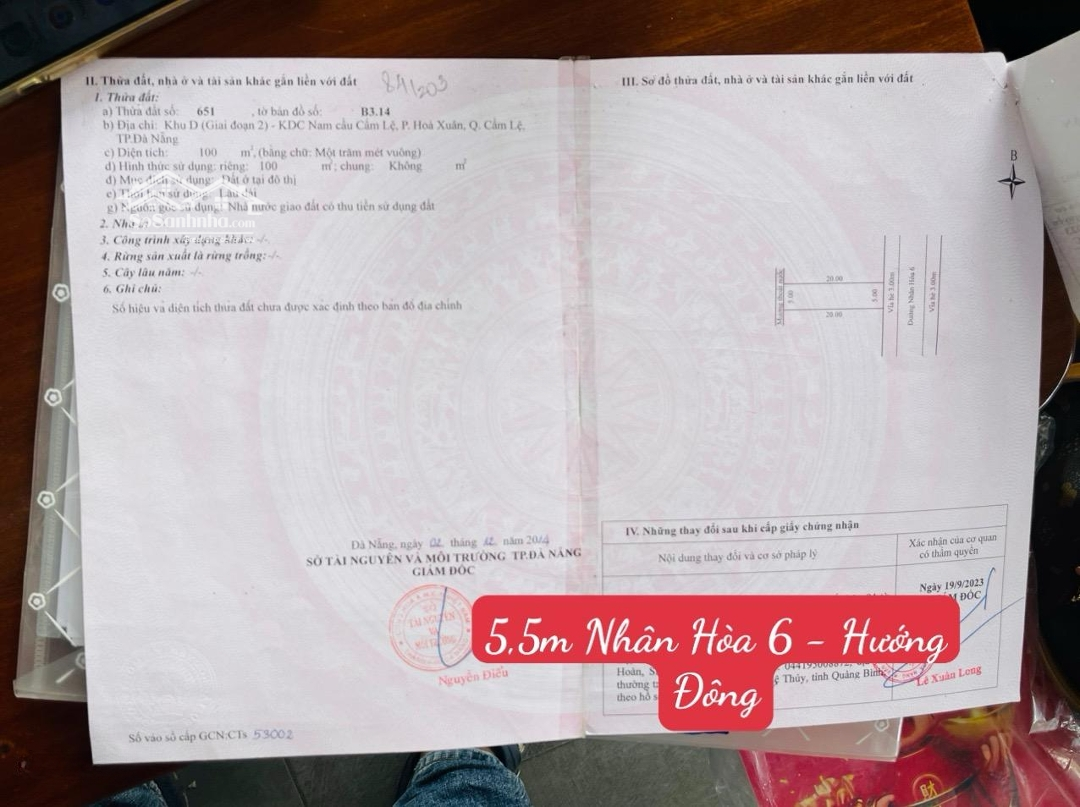 II. Thửa đất, nhà ở và tài sản khác gắn liền với đất
84/203
1. Thửa đất:
a) Thửa đất số: 651 , tờ bản đồ số: B3.14
b) Địa chỉ: Khu D (Giai đoạn 2) - KDC Nam cầu Cẩm Lệ, P. Hoà Xuân, Q. Cẩm Lệ,
TP.Đà Nẵng
c) Diện tích: 100 m², (bằng chữ: Một trăm mét vuông)
d) Hình thức sử dụng: riêng: 100 m²; chung: Không m²
đ) Mục đích sử dụng: Đất ở tại đô thị
e) Thời hạn sử dụng: Lâu dài
g) Nguồn gốc sử dụng: Nhà nước giao đất có thu tiền sử dụng đất
2. Nhà
3. Công trình xây dựng khác: -/-
4. Rừng sản xuất là rừng trồng: -/-
5. Cây lâu năm: -/-
6. Ghi chú:
Số hiệu và diện tích thửa đất chưa được xác định theo bản đồ địa chính
Đà Nẵng, ngày 02 tháng 12 năm 2014
SỞ TÀI NGUYÊN VÀ MÔI TRƯỜNG TP.ĐÀ NẴNG
GIÁM ĐỐC
SỞ
TÀI NGUYÊN
VÀ
MÔI TRƯỜNG
Nguyễn Điểu
Số vào sổ cấp GCN:CTs 53002
III. Sơ đồ thửa đất, nhà ở và tài sản khác gắn liền với đất
B
Mương thoát nước
20.00
5.00
5.00
20.00
Vỉa hè 3.00m
Đường Nhân Hòa 6
Vỉa hè 3.00m
IV. Những thay đổi sau khi cấp giấy chứng nhận
Nội dung thay đổi và cơ sở pháp lý
Xác nhận của cơ quan
có thẩm quyền
Ngày 19/9/2023
ĐỐC
5.5m Nhân Hòa 6 - Hướng
Đông
Hoàn,
thường
Thủy, tỉnh Quảng Bình
theo hồ
Lê Xuân Long
Sosanhnha.com